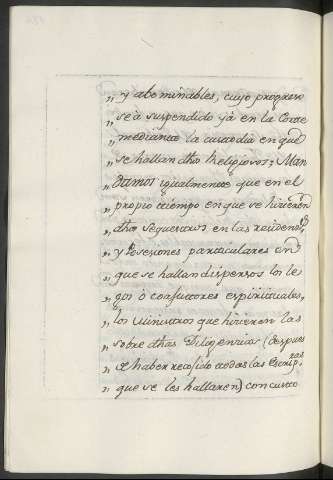 „ y abominables, cuyo progreso
„ se à suspendido yà en la Corte
„ mediante la custodia en que
„ se hallan dhos Religiosos; Man
„ damos igualmente que en el
„ propio tiempo en que se hicieren
„ dhos sequestros en las residens
„ y Posesiones particulares en
„ que se hallan dispersos los le
„ gos ò coajutores espirituales,
„ los Ministros que hicieren las
„ sobre dhas Diligencias (despues
„ de haber recogido todas las Escripras
„ que se les hallaren) con custo